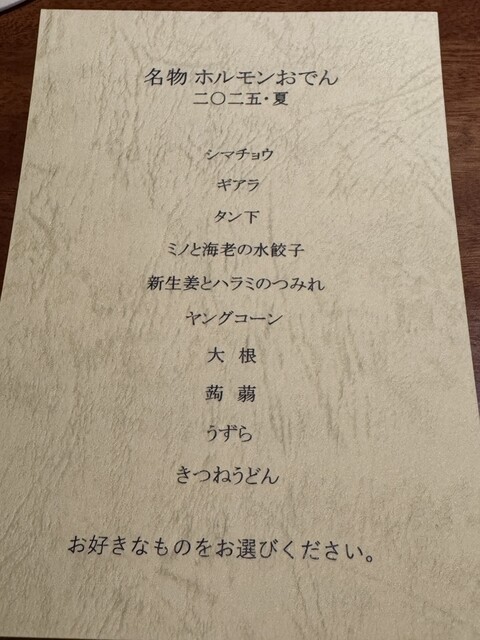 名物 ホルモンおでん
二〇二五・夏
シマチョウ
ギアラ
タン下
ミノと海老の水餃子
新生姜とハラミのつみれ
ヤングコーン
大 根
蒟 蒻
うずら
きつねうどん
お好きなものをお選びください。